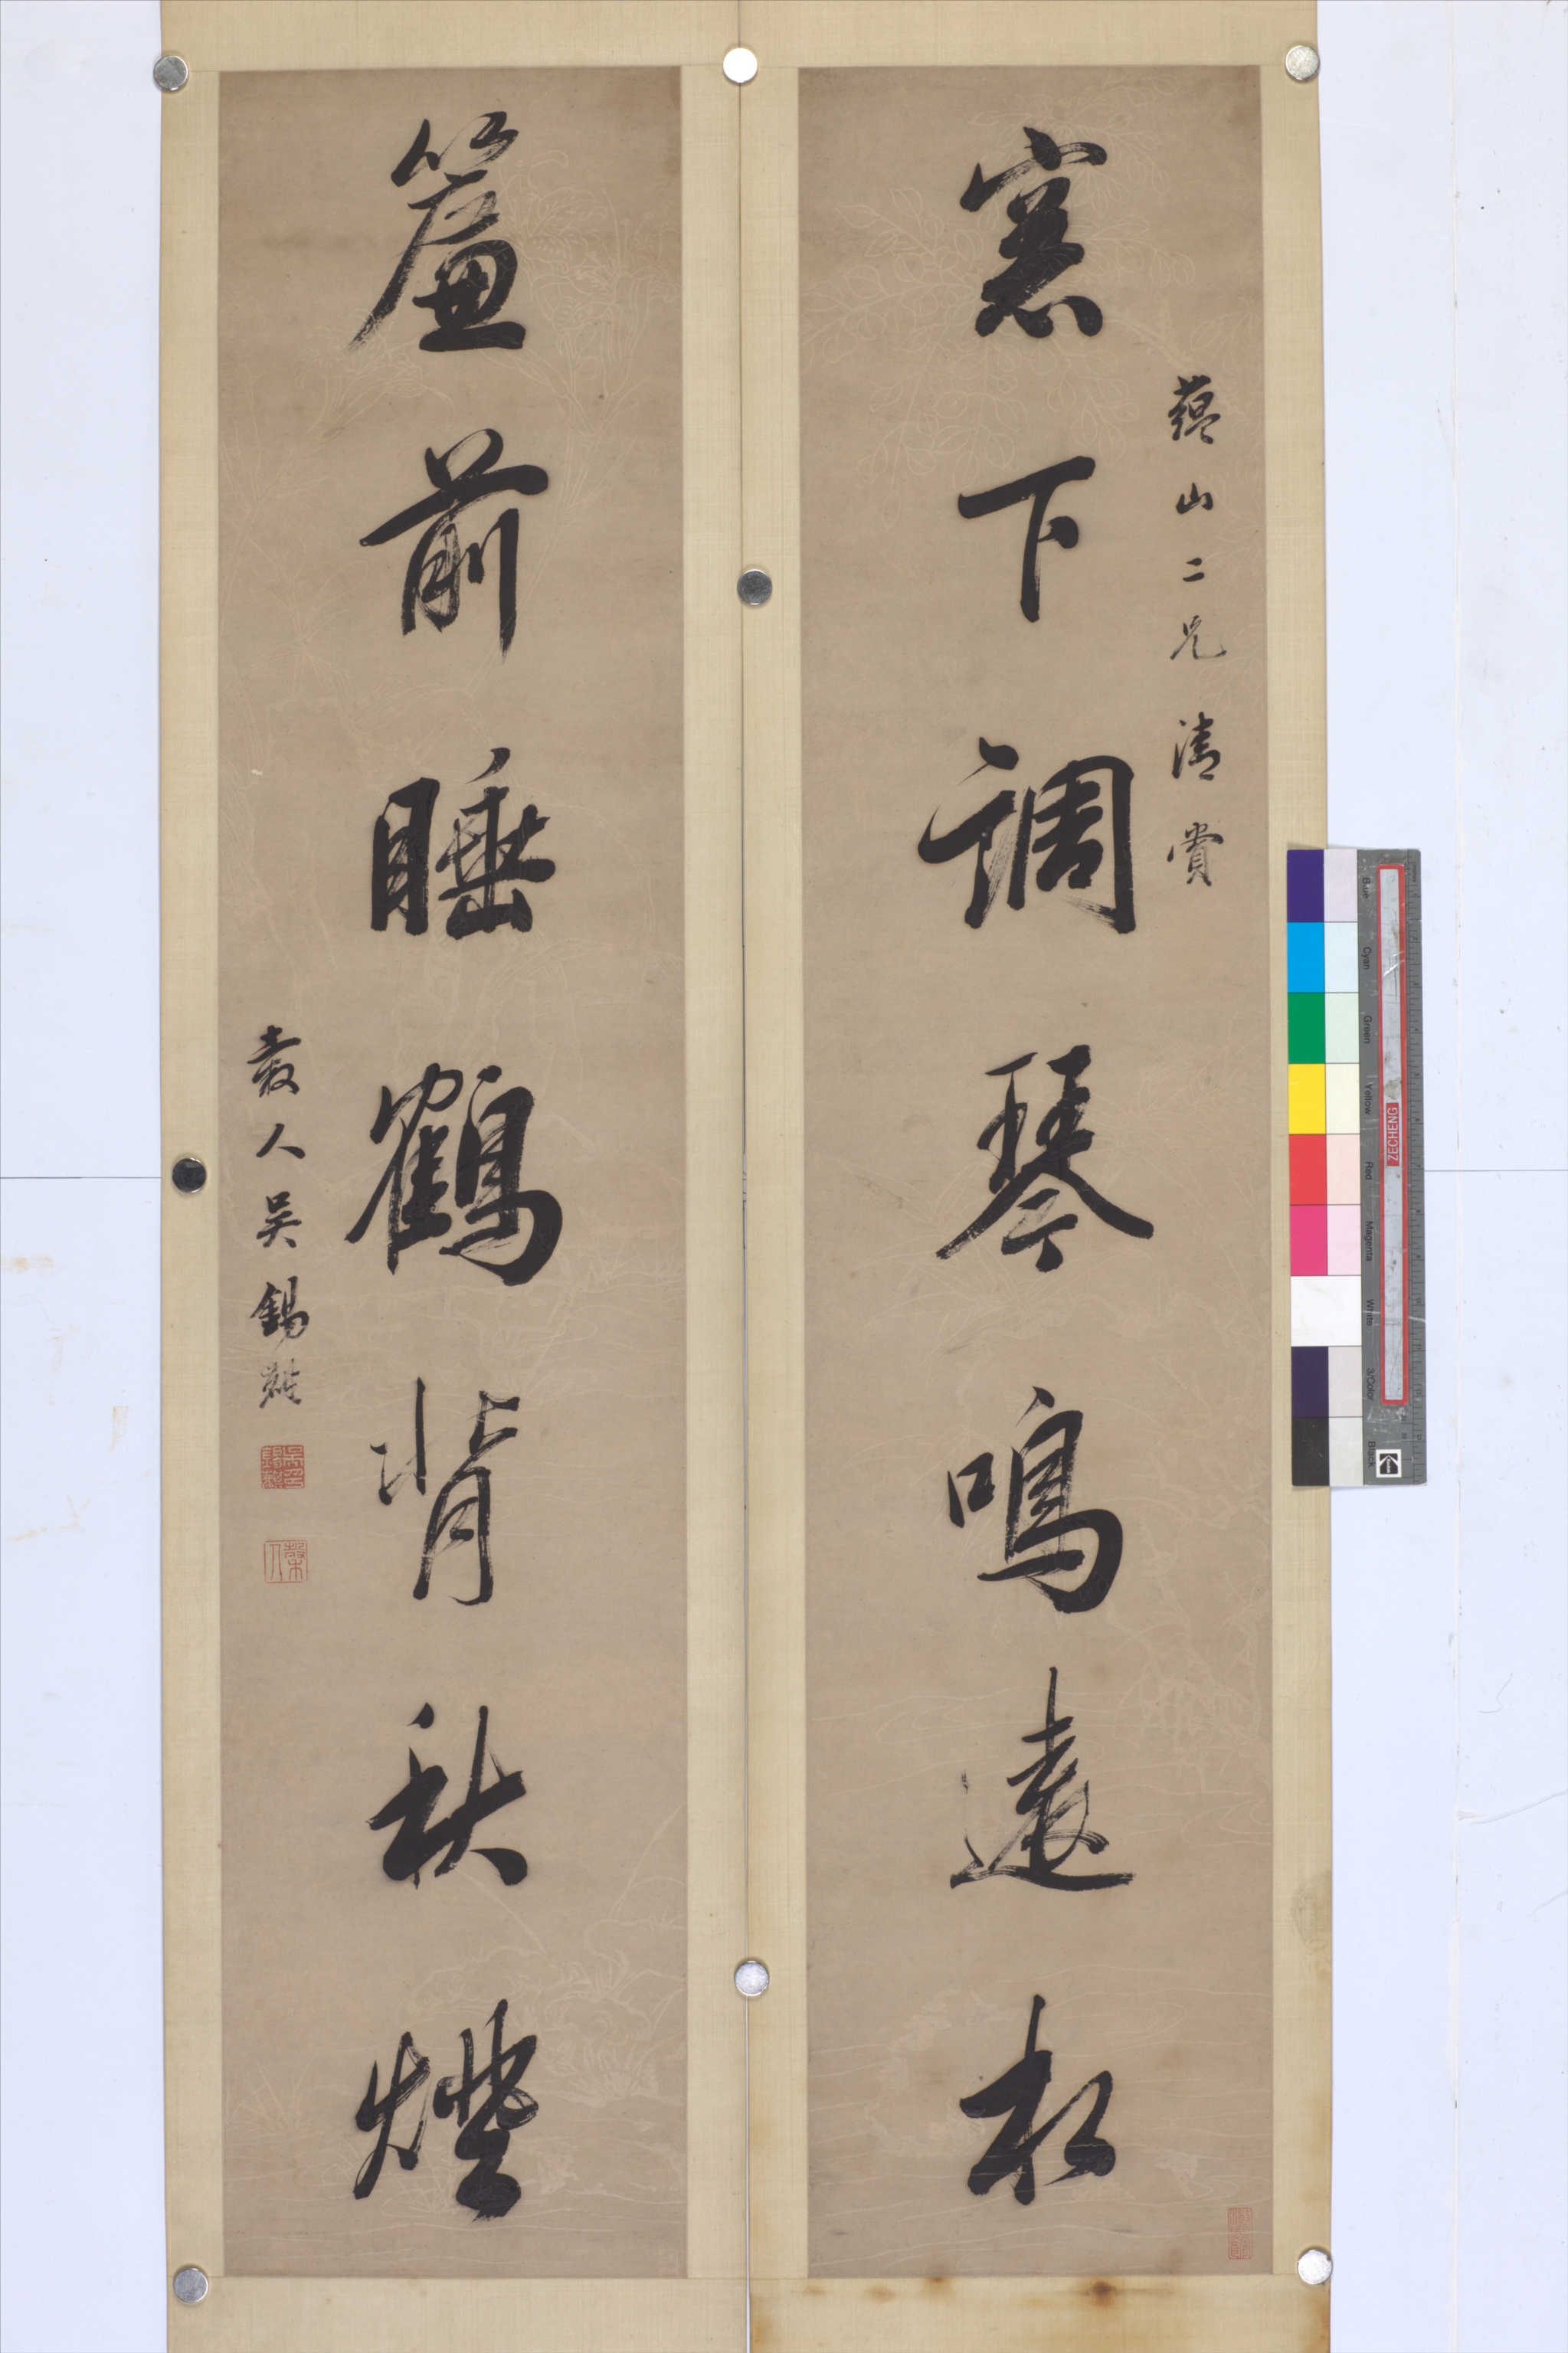 蘊山二兄清賞
窓下調琴鳴遠水
簾前睡鶴背秋燈
穀人吳錫麒
吳印錫麒
穀人
Blue
Cyan
Green
Yellow
Red
Magenta
White
3/Color
Black
ZECHENG